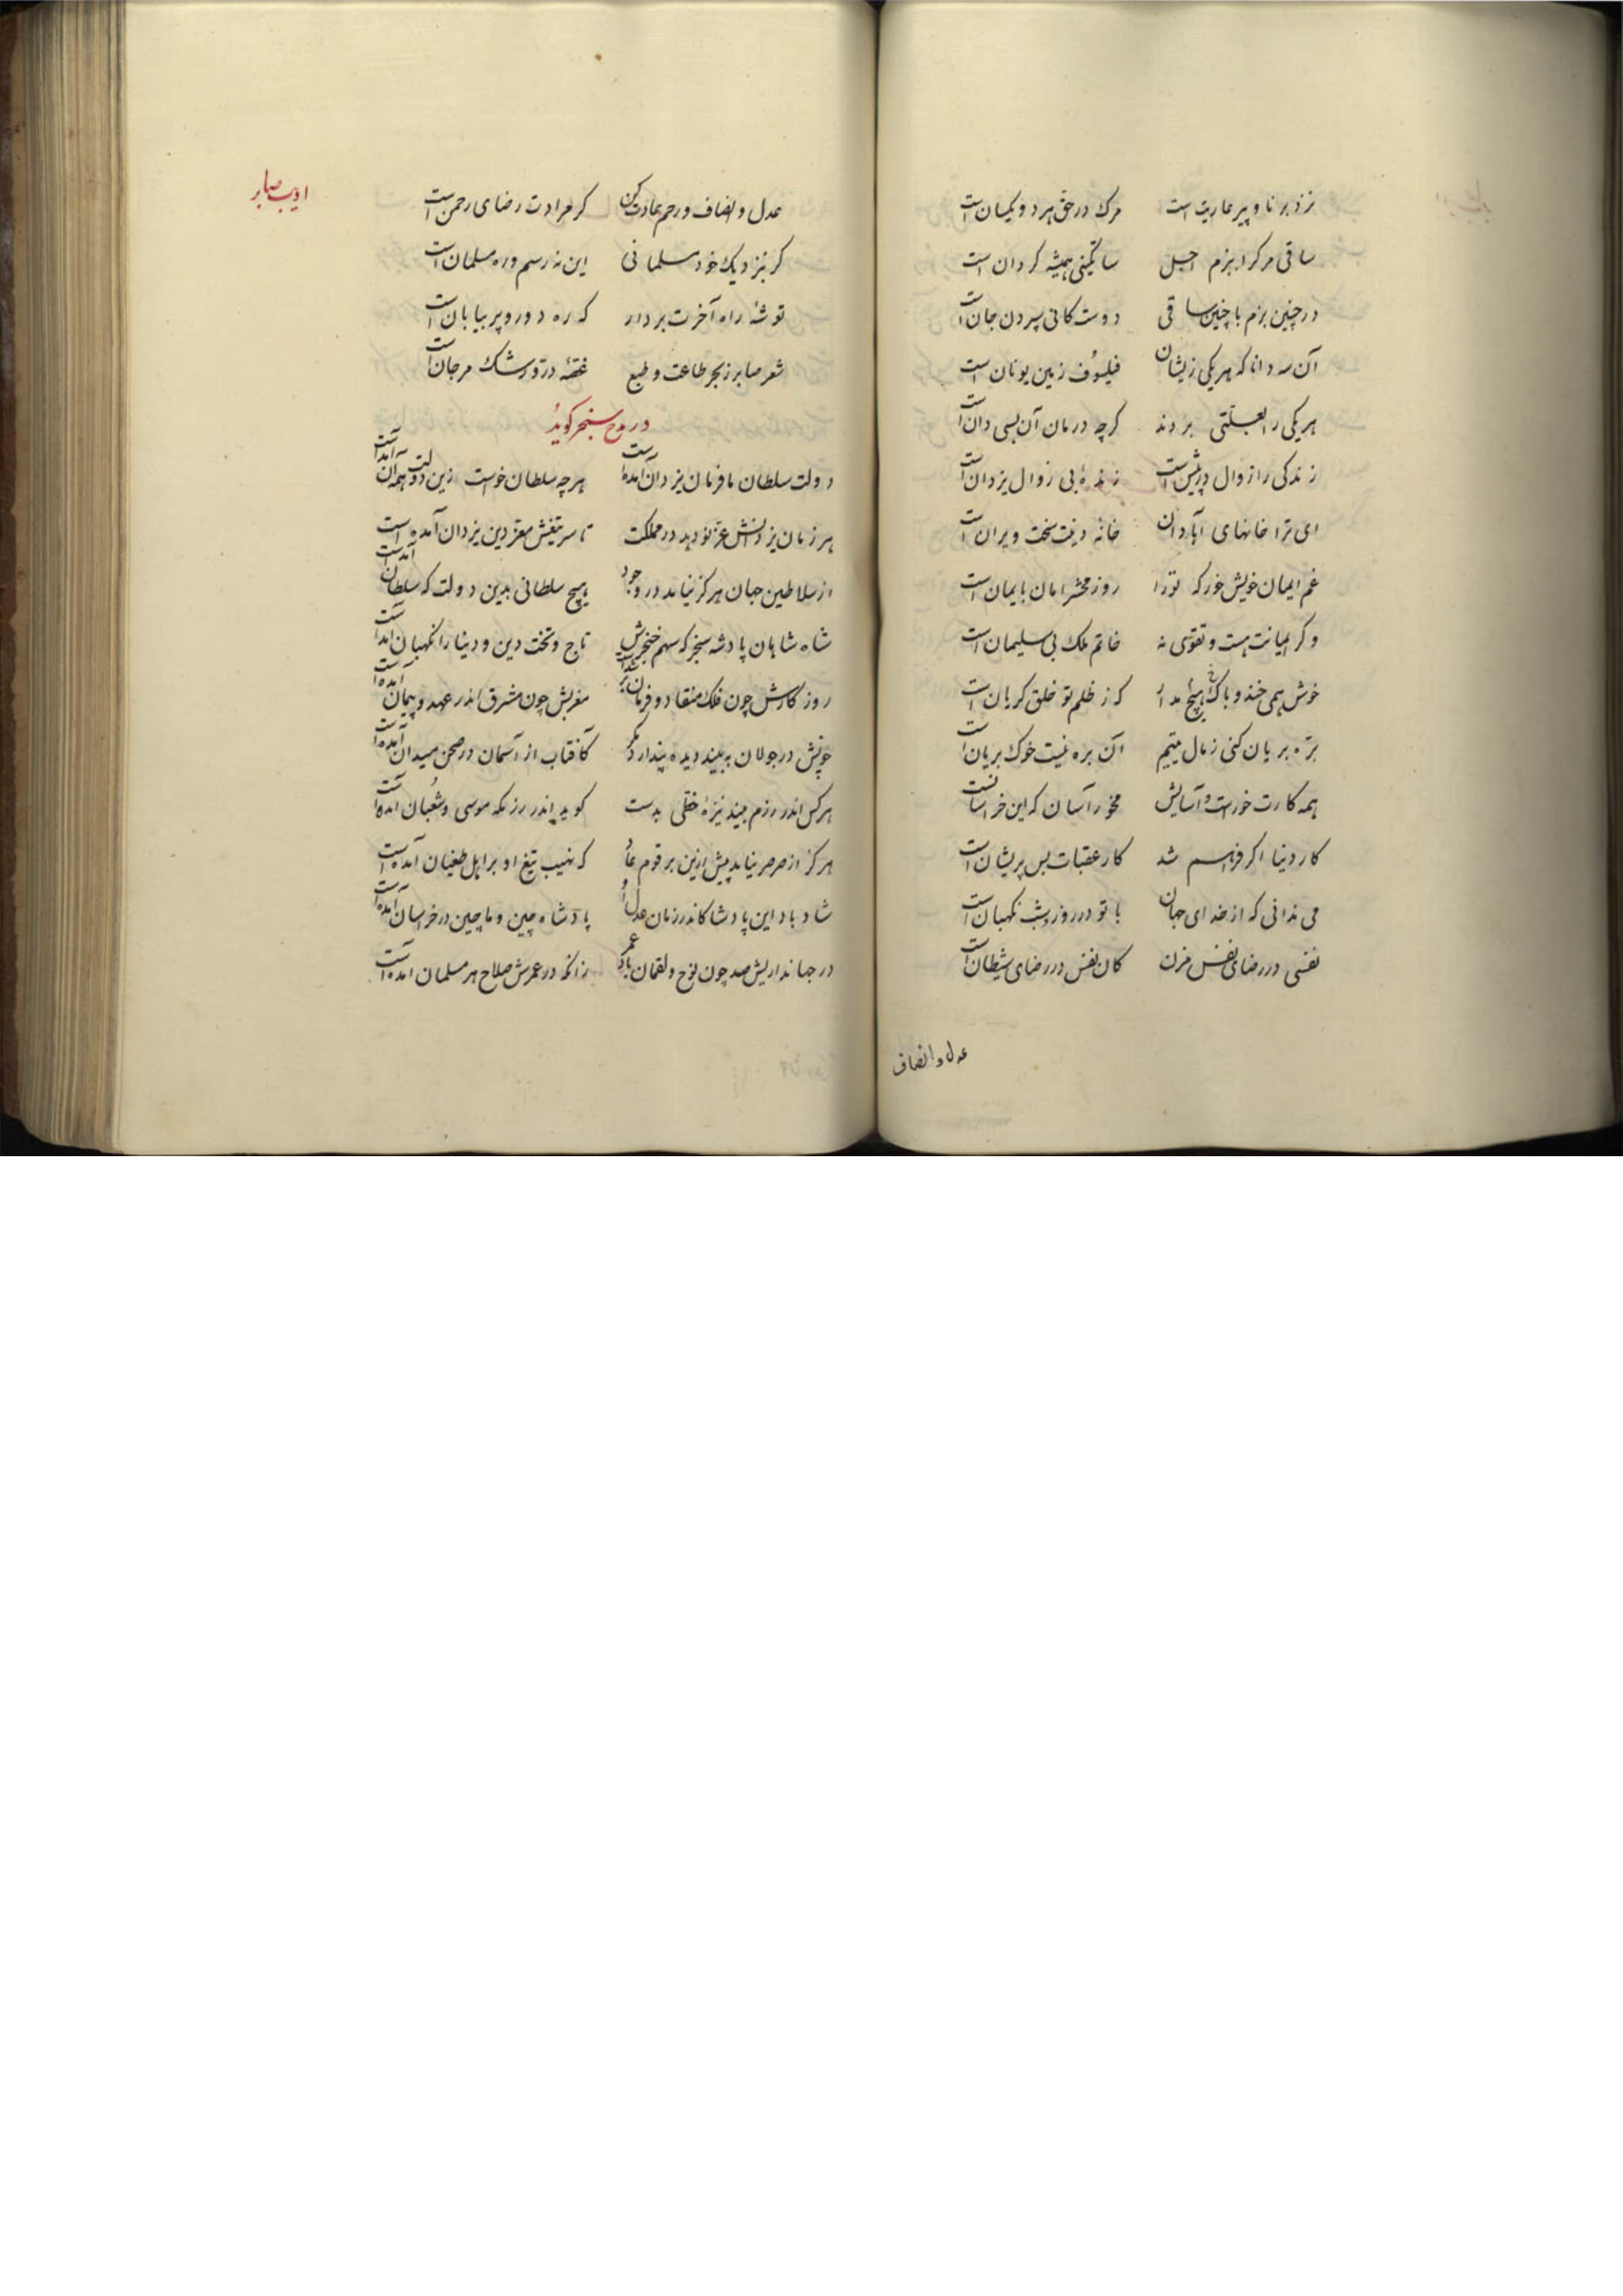 نزد برنا و پیر عاریت است مرک در حق هر دو یکسان است
ساقی مرکرا ببزم اجل ساتکینی همیشه کردان است
در چنین بزم با چنین ساقی دوستکانی سپردن جان است
آن سه دانا که هر یکی زیشان فیلسوف زمین یونان است
هر یکی را بعلتی بردند کرچه درمان آن بسی دان است
زندکی را زوال در پیش است زندهٔ بی زوال یزدان است
ای ترا خانهای آبادان خانهٔ دینت سخت ویران است
غم ایمان خویش خور که ترا روز محشر امان بایمان است
و کر ایمانت هست و تقوی نه خاتم ملک بی سلیمان است
خوش همی خند و باک هیچ مدار کز ظلم تو خلق کریان است
بره بریان کنی ز مال یتیم آن بره نیست خوک بریان است
همه کارت خورست و آسایش مخور آسان که این خر آسانست
کار دنیا اکر فراهم شد کار عقبات بس پریشان است
می ندانی که از خدای جهان با تو در روز و شب نکهبان است
نفسی در رضای نفس مزن کان نفس در رضای شیطان است
عدل و انصاف
ادیب صابر
عدل و انصاف و رحم عادت کن کر مرادت رضای رحمن است
کر بنزدیک خود مسلمانی این نه رسم و ره مسلمان است
توشهٔ راه آخرت بردار که ره دور و پر بیابان است
شعر صابر ز بحر طاعت و طبع غصهٔ در و رشک مرجان است
در مدح سنجر کوید
دولت سلطان ما فرمان یزدان آمده است هر چه سلطان خواست زین دولت همه آن آمده است
هر زمان یزدانش عز نو دهد در مملکت تا سر تیغش معز دین یزدان آمده است
از سلاطین جهان هرکز نیامد در وجود هیچ سلطانی بدین دولت که سلطان آمده است
شاه شاهان پادشه سنجر که سهم خنجرش تاج و تخت دین و دنیا را نکهبان آمده است
روز کارش چون فلک منقاد و فرمان بر شده است مغربش چون مشرق اندر عهد و پیمان آمده است
چونش در جولان ببیند دیده پندارد مکر کافتاب از آسمان در صحن میدان آمده است
هر کس اندر رزم بیند نیزهٔ خطی بدست کوید اندر رزمکه موسی و ثعبان آمده است
هرکز از صرصر نیامد پیش ازین بر قوم عاد که نهیب تیغ او بر اهل طغیان آمده است
شاد باد این پادشا کاندر زمان عدل او پادشاه چین و ماچین در خراسان آمده است
در جهانداریش صد چون نوح و لقمان باد عمر زانکه در عمرش صلاح هر مسلمان آمده است